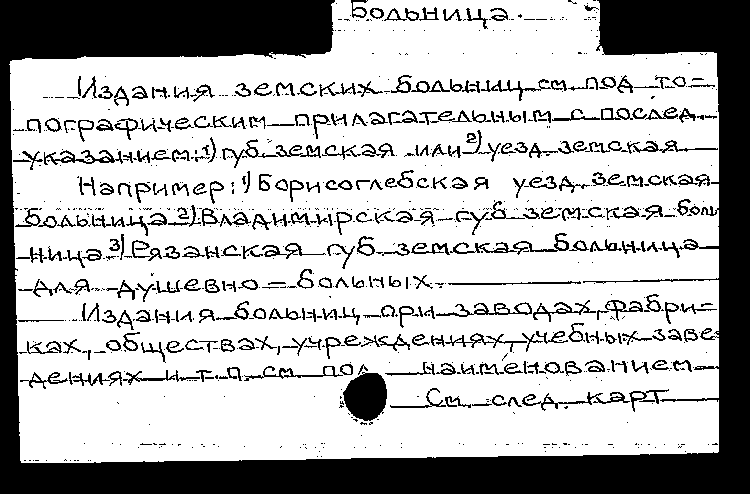 Больница.
Издания земских больниц см. под то=
пографическим прилагательным с послед.
указанием: 1) губ. земская или 2) уезд. земская.
Например: 1) Борисоглебская уезд. земская
больница 2) Владимирская губ. земская боль
ница 3) Рязанская губ. земская больница
для душевно-больных.
Издания больниц при заводах, фабри=
ках, обществах, учреждениях, учебных заве
дениях и т.п. см. под наименованием
См. след. карт